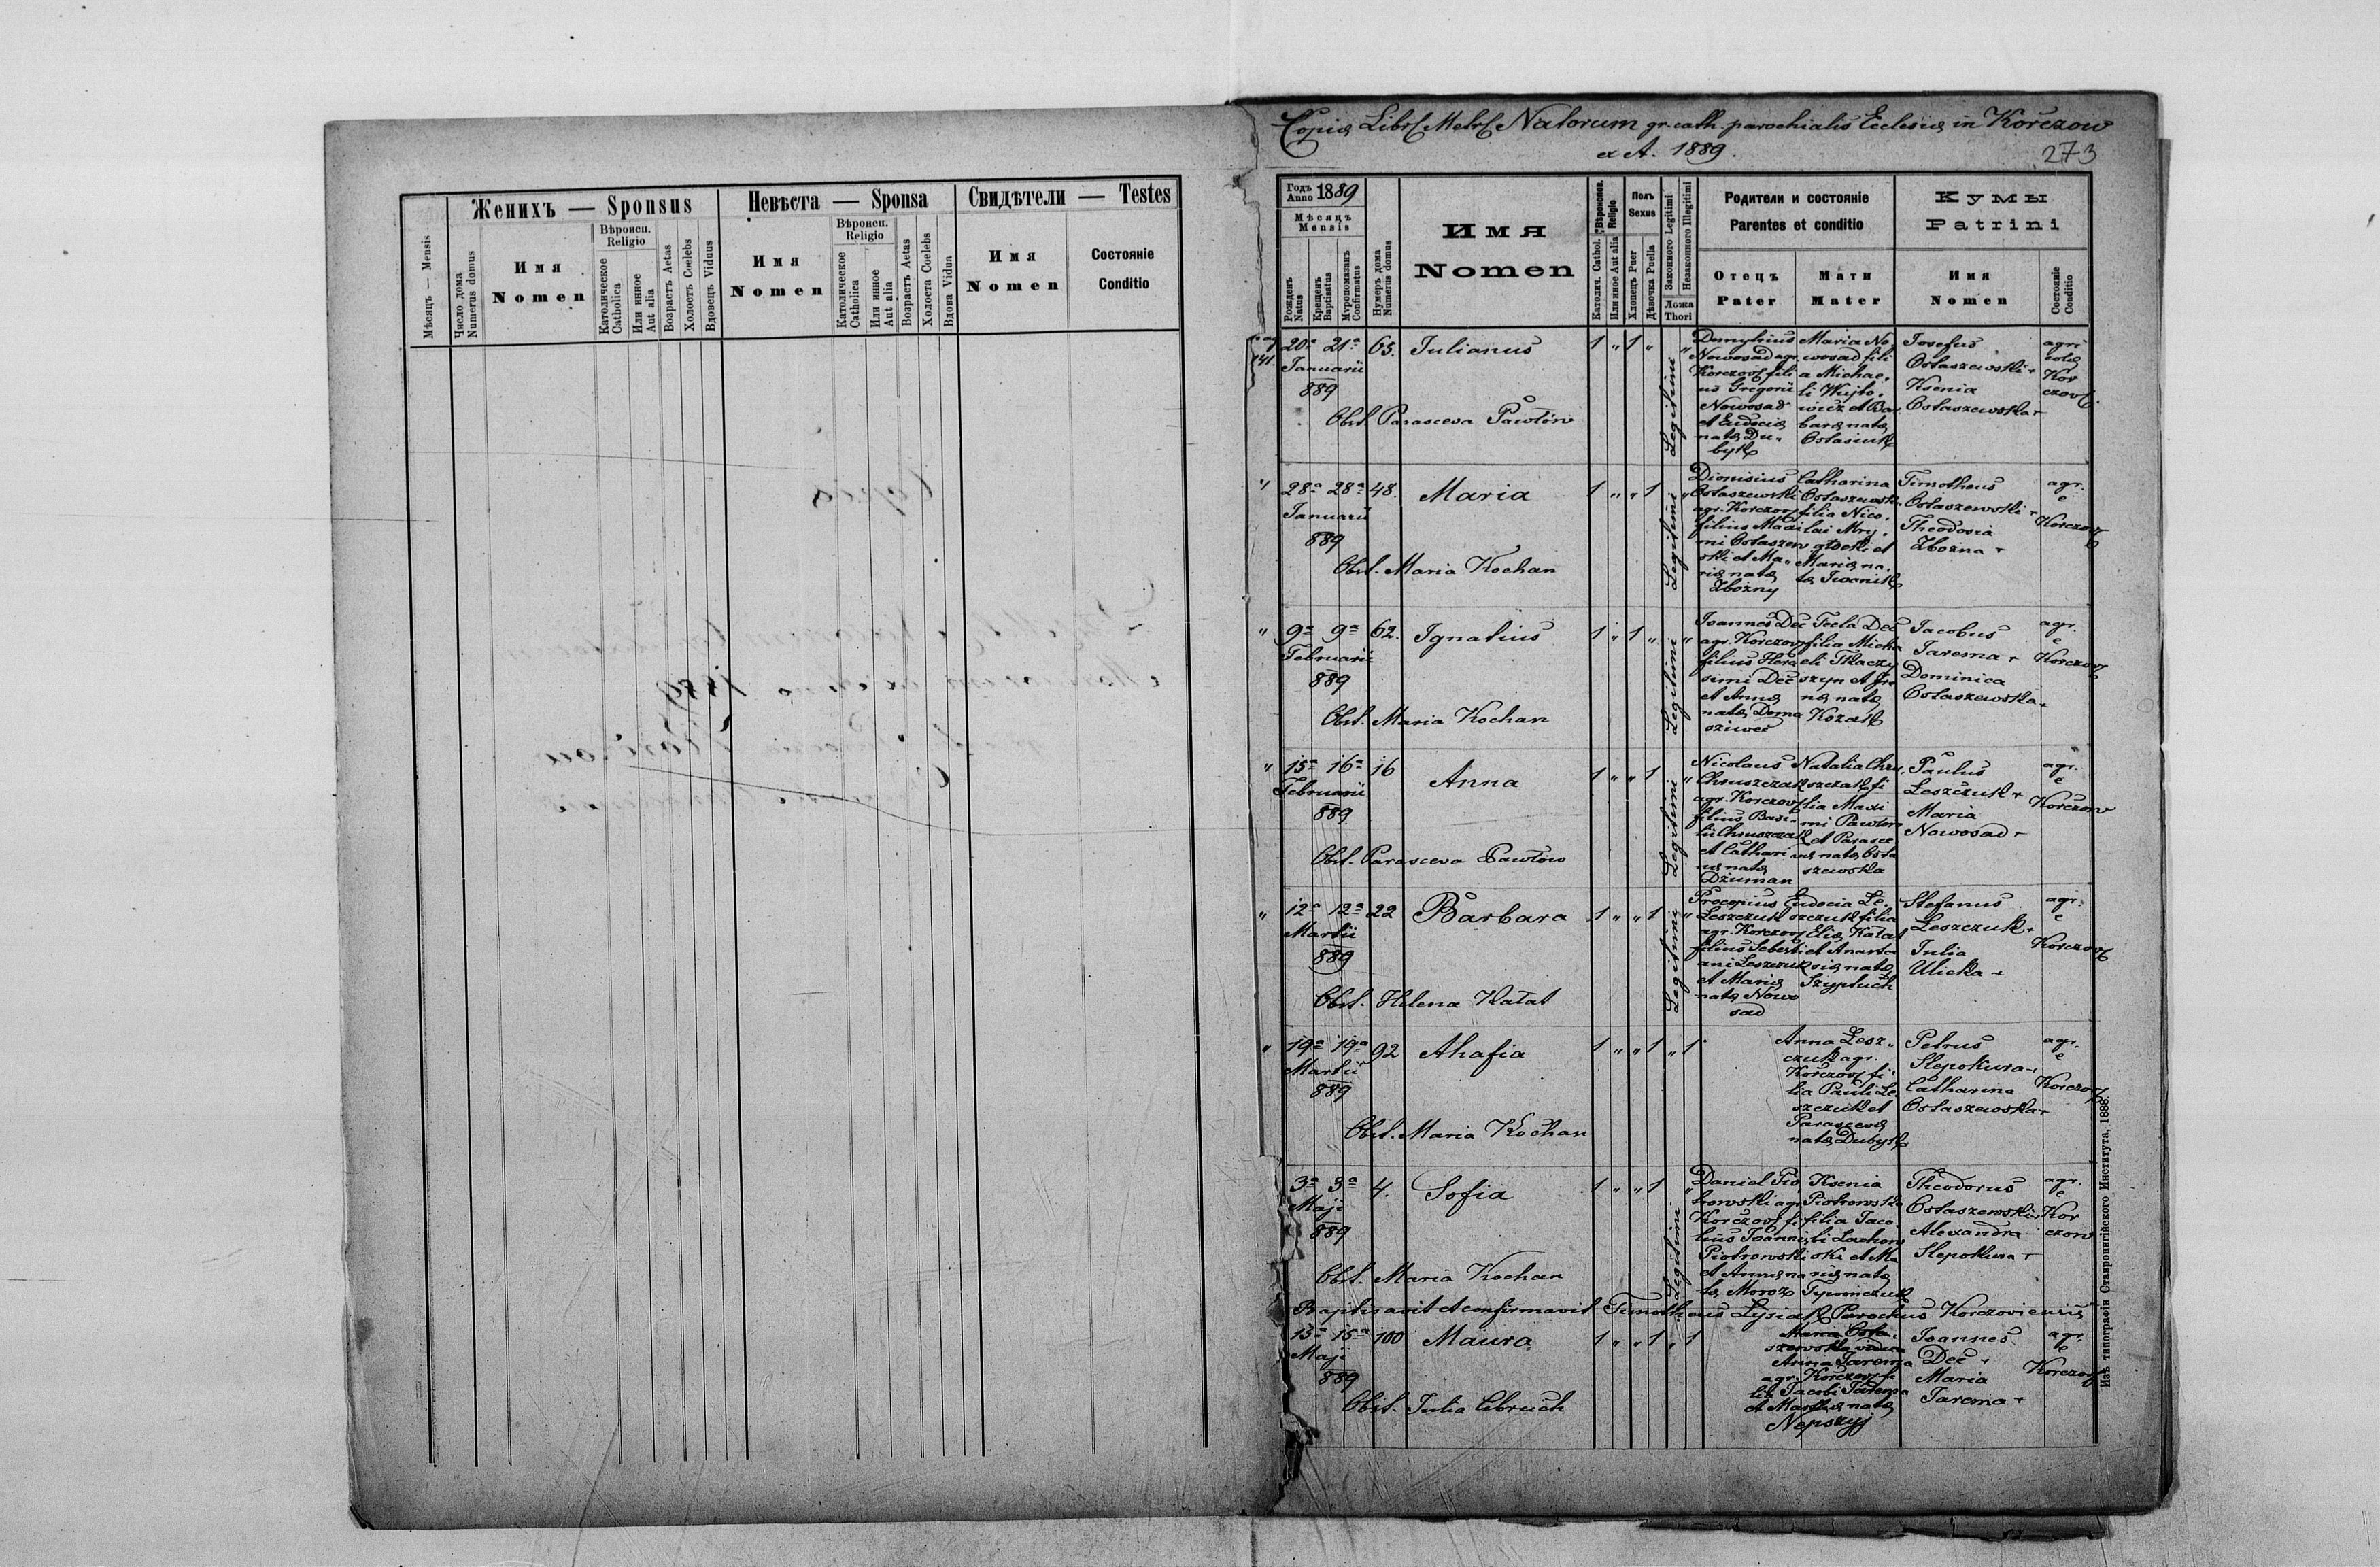 Женихъ — Sponsus
Невѣста — Sponsa
Свидѣтели — Testes
Мѣсяцъ — Mensis
Число дома
Numerus domus
Имя
Nomen
Вѣроисп.
Religio
Католическое
Catholica
Или инное
Aut alia
Возрастъ Aetas
Холостъ Coelebs
Вдовецъ Viduus
Имя
Nomen
Вѣроисп.
Religio
Католическое
Catholica
Или инное
Aut alia
Возрастъ Aetas
Холоста Coelebs
Вдова Vidua
Имя
Nomen
Состояніе
Conditio
Copia Metr. Natorum gr. cath. parochialis Ecclesiae in Korczow
ex A. 1889.
273
Годъ
Anno 1889
Мѣсяцъ
Mensis
Рожденъ
Natus
Крещенъ
Baptisatus
Муропомазанъ
Confirmatus
Нумеръ дома
Numerus domus
Имя
Nomen
Вѣроиспов.
Religio
Католич. Cathol.
Или иное Aut alia
Полъ
Sexus
Хлопецъ Puer
Дѣвочка Puella
Законного Legitimi
Незаконного Illegitimi
Ложа
Thori
Родители и состояніе
Parentes et conditio
Отецъ
Pater
Мати
Mater
Кумы
Patrini
Имя
Nomen
Состояніе
Conditio
20a 21a 65. Julianus 1 " 1 "
Januarii
889
Obst. Parasceva Pawłów
Legitimi
Nowosad agr.
us Gregorii
Nowosad
et Eudociae
natae Du-
byk
Maria No-
wosad fili
a Michae-
li Wujto-
wicz et Bar-
barae natae
Ostasiuk
Josefus
Ostaszewski +
Ksenia
Ostaszewska +
agri
colae
Kor
czov.
" 28a 28a 48. Maria 1 " " 1 "
Januarii
889
Obst. Maria Kochan
Legitimi
Dionisius
Ostaszewski
agr. Korczov
filius Maxi
mi Ostaszew
ski et Ma-
riae natae
Zbożny
Catharina
Ostaszewska
filia Nico-
lai Mry-
głocki et
Mariae na-
tae Iwanik
Timotheus
Ostaszewski +
Theodosia
Zbożna +
agr.
e
Korczov
" 9a 9a 62. Ignatius 1 " 1 " "
Februarii
889
Obst. Maria Kochan
Legitimi
Joannes Dec
agr. Korczov
filius Hera
simi Dec
et Annae
natae Doma
sziwec
Tecla Dec
filia Micha
eli Tkaczy
szyn et Ire
nae natae
Kozak
Jacobus
Jarema +
Dominica
Ostaszewska +
agr.
e
Korczov
" 15a 16a 16 Anna 1 " " 1 "
Februarii
889
Obst. Parasceva Pawłów
Legitimi
Nicolaus
Chruszczak
agr. Korczov
filius Basi-
lii Chruszczak
et Cathari
nae natae
Dziuman
Natalia Chru-
szczak fi
lia Maxi
mi Pawłów
et Parasce
vae natae Osta
szewska
Paulus
Leszczuk +
Maria
Nowosad +
agr.
e
Korczow
" 12a 12a 22 Barbara 1 " " 1 "
Martii
889
Obst. Helena Kałat
Legitimi
Procopius
Leszczuk
agr. Korczov
filius Sebesti
ani Leszczuk
et Mariae
natae Nowo
sad
Eudocia Le-
szczuk filia
Eliae Kałat
et Anasta
siae natae
Szypluch
Stefanus
Leszczuk +
Julia
Ulicka +
agr.
e
Korczov
" 19a 19a 92 Ahafia 1 " " 1 " 1
Martii
889
Obst. Maria Kochan
Anna Lesz-
czuk agr.
Korczov fi-
lia Pauli Le
szczuk et
Parascevae
natae Dubyk
Petrus
Slepokura +
Catharina
Ostaszewska +
agr.
e
Korczov
3a 3a 4. Sofia 1 " " 1 "
Maji
889
Obst. Maria Kochan
Legitimi
Daniel Pio
trowski agr.
Korczov fi
lius Joannis
Piotrowski
et Annae na
tae Moroz
Ksenia
Piotrowska
filia Jaco
bi Lachow
ski et Ma
riae natae
Tywonczuk
Theodorus
Ostaszewski +
Alexandra
Slepokura +
agr.
e
Kor
czow
Baptisavit et confirmavit Timotheus Lysiak Parochus Korczoviensis
15a 15a 100 Maura 1 " " 1 " 1
Maji
889
Obst. Julia Cebruch
Maria Osta-
szewska vidua
Anna Jarema
agr. Korczov fi
lia Jacobi Jarema
et Marthae natae
Nepszyj
Joannes
Dec +
Maria
Jarema +
agr.
e
Korczov
Изъ типографіи Ставропигійского Института, 1888.